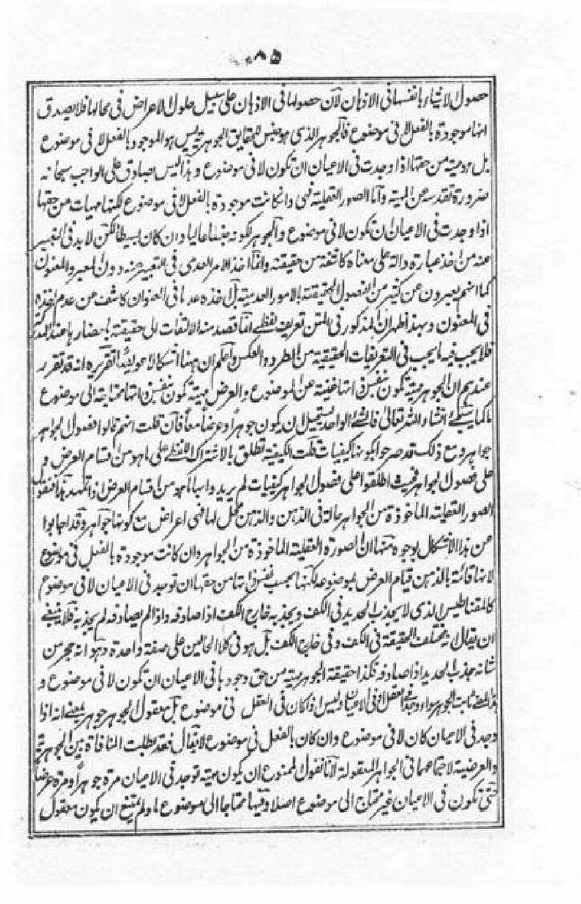 ٨٥
حصول الاشياء بانفسها فى الاذهان لان حصولها فى الاذهان على سبيل حلول الاعراض فى محالها فلا يصدق
انها موجودة بالفعل لا فى موضوع فالجوهر الذى هو جنس للحقائق الجوهرية ليس هو الموجود بالفعل لا فى موضوع
بل مهية من حقها اذا وجدت فى الاعيان ان تكون لا فى موضوع وهذا ليس بصادق على الواجب سبحانه
ضرورة تقدسه عن المهية واما الصور العقلية فهى وانكانت موجودة بالفعل لا فى موضوع لكنها مهيات من حقها
اذا وجدت فى الاعيان ان تكون لا فى موضوع والجوهر لكونه جنسا عاليا وان كان بسيطا لكن لابد فى التعبير
عنه من اخذ عبارة دالة على معناه كاشفة عن حقيقته وانما اخذ الامر العدمى فى التعبير عنه دون المعبر والمعنون
كما انهم يعبرون عن كثير من الفصول الحقيقية بالامور العدمية بل اخذه عدما فى العنوان كاشف عن عدم اخذه
فى المعنون وبهذا ظهر ان المذكور فى المتن تعريف لفظى انما قصد منه الالتفات الى حقيقته باحضارها عند المدركة
فلا يجب فيه ما يجب فى التعريفات الحقيقية من الطرد والعكس واعلم ان ههنا اشكالا عويصا تقريره انه قد تقرر
عندهم ان الجوهر مهية تكون بنفس ذاتها غنية عن الموضوع والعرض مهية تكون بنفس ذاتها محتاجة الى موضوع
ما كما سيجئ انشاء الله تعالى فالشئ الواحد يستحيل ان يكون جوهرا وعرضا معا فان قلت انهم قالوا فصول الجواهر
جواهر ومع ذلك قد صرحوا بكونها كيفيات قلت الكيفية تطلق بالاشتراك اللفظى على ما هو من اقسام العرض و
على فصول الجواهر فحيث اطلقوا على فصول الجواهر كيفيات لم يريدوا بها ما هو من اقسام العرض اذا تمهد هذا فنقول
الصور العقلية الماخوذة من الجواهر حالة فى الذهن والذهن محل لها فهى اعراض مع كونها جواهر وقد اجابوا
عن هذا الاشكال بوجوه منها ان الصورة العقلية الماخوذة من الجواهر وان كانت موجودة بالفعل فى موضوع
لانها قائمة بالذهن قيام العرض بموضوعه لكنها بحسب نفس ذاتها من حقها ان توجد فى الاعيان لا فى موضوع
كالمقناطيس الذى لا يجذب الحديد فى الكف ويجذبه خارج الكف اذا صادفه واذا لم يصادفه لم يجذبه فلا ينبغى
ان يقال مختلف الحقيقة فى الكف وفى خارج الكف بل هو فى كلا الحالين على صفة واحدة وهو انه حجر من
شانه جذب الحديد اذا صادفه فكذا حقيقة الجوهر مهية من حق وجودها فى الاعيان ان تكون لا فى موضوع و
هذا المعنى ثابت للجوهر سواء وجد فى العقل او فى الاعيان وليس اذا كان فى العقل فى موضوع بل معقول الجوهر جوهر بمعنى انه اذا
وجد فى الاعيان كان لا فى موضوع وان كان بالفعل فى موضوع لا يقال فقد بطلت المنافاة بين الجوهرية
والعرضية لاجتماعهما فى الجواهر المعقولة لانا نقول الممنوع ان يكون مهية توجد فى الاعيان مرة جوهرا ومرة عرضا
حتى تكون فى الاعيان غير محتاج الى موضوع اصلا وفيها محتاجا الى موضوع ما ولم يمتنع ان يكون معقول